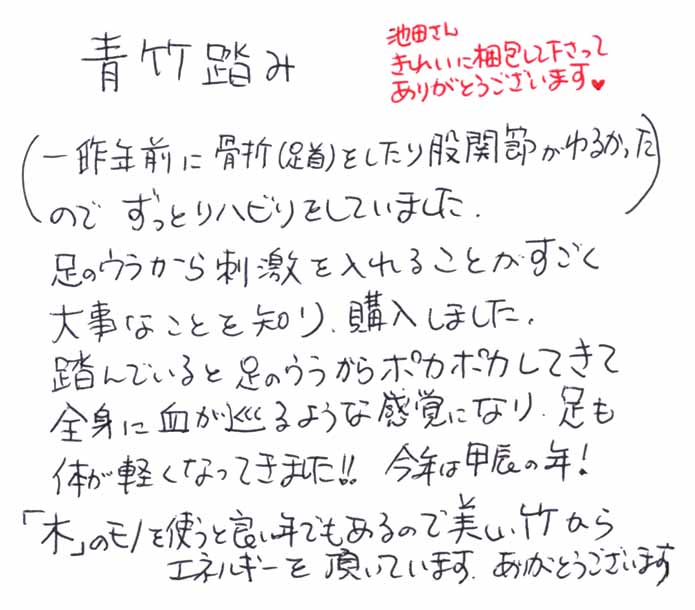 青竹踏み
池田さん
きれいに梱包して下さって
ありがとうございます♥
(一昨年前に骨折(足首)をしたり股関節がわるかった
のでずっとリハビリをしていました.)
足のウラから刺激を入れることがすごく
大事なことを知り、購入しました.
踏んでいると足のウラからポカポカしてきて
全身に血が巡るような感覚になり、足も
体が軽くなってきました!! 今年は甲辰の年!
「木」のモノを使うと良い年でもあるので美しい竹から
エネルギーを頂いています. ありがとうございます